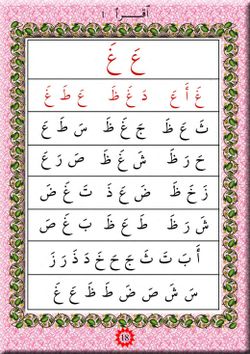 أقرأ ١
عَ غَ
غَ أَ عَ دَ غَ ظَ عَ طَ غَ
ثَ عَ ظَ جَ غَ ظَ سَ طَ عَ
حَ رَ ظَ شَ غَ ظَ صَ رَ عَ
زَ خَ ظَ ضَ عَ ذَ تَ غَ ضَ
شَ رَ ظَ طَ عَ ظَ بَ غَ صَ
أَ بَ تَ ثَ جَ حَ خَ دَ ذَ رَ زَ
سَ شَ صَ ضَ طَ ظَ عَ غَ
18